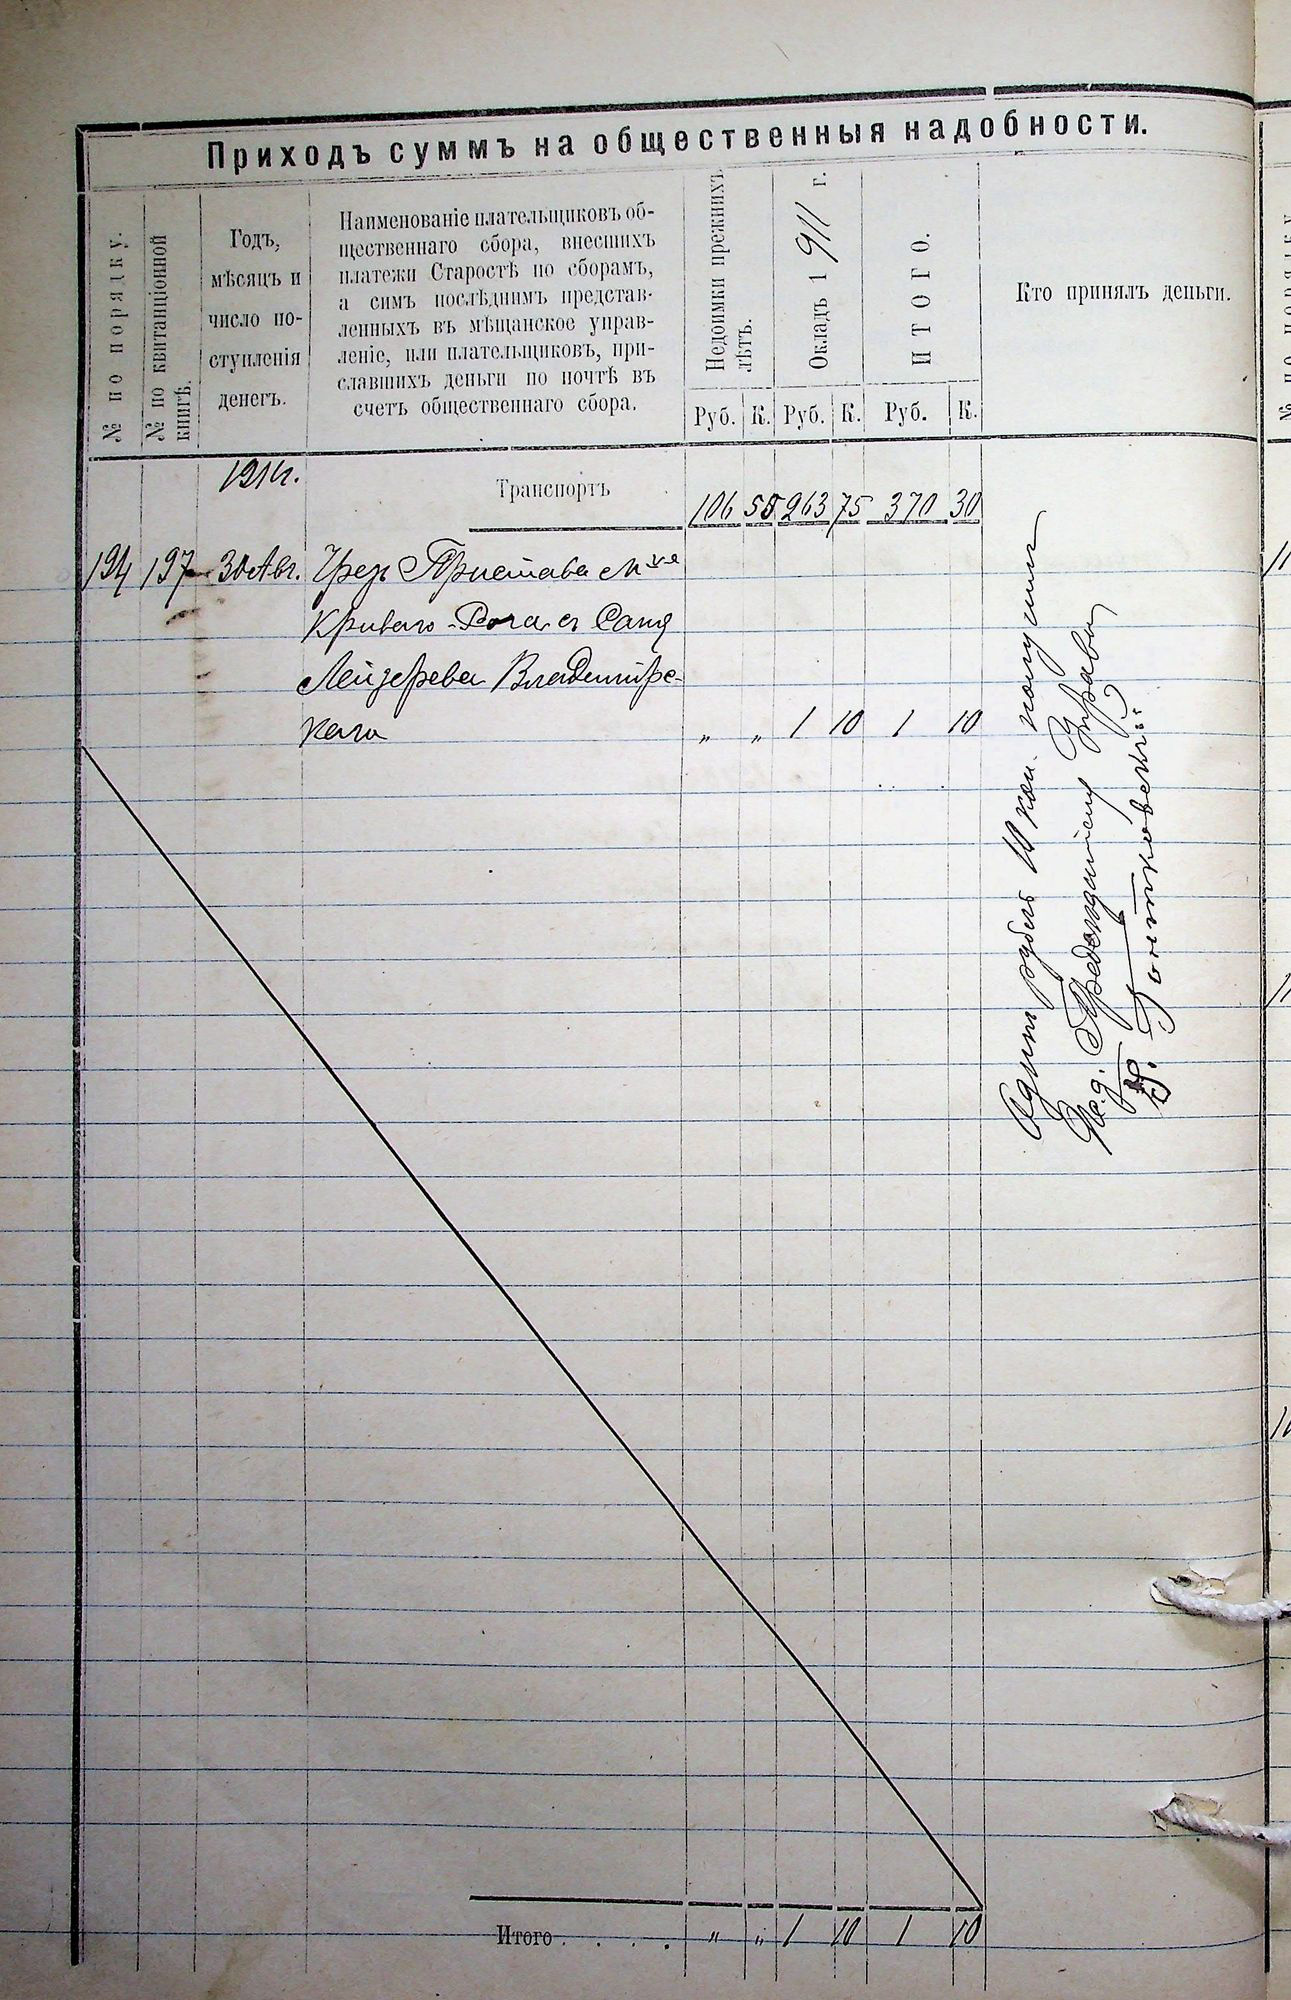 Приходъ суммъ на общественныя надобности.
№ по порядку.
№ по квитанціонной
книгѣ.
Годъ,
мѣсяцъ и
число по-
ступленія
денегъ.
Наименованіе плательщиковъ об-
щественнаго сбора, внесшихъ
платежи Старостѣ по сборамъ,
а симъ послѣднимъ представ-
ленныхъ въ мѣщанское управ-
леніе, или плательщиковъ, при-
славшихъ деньги по почтѣ въ
счетъ общественнаго сбора.
Недоимки прежнихъ
лѣтъ.
Окладъ 1911 г.
ИТОГО.
Кто принялъ деньги.
Руб. К. Руб. К. Руб. К.
1911г. Транспортъ 106 55 263 75 370 30
194 197 30 Авг. Чрез Пристава м-ка
Криваго-Рога съ
Лейзерева Владимірс-
каго „ „ 1 10 1 10
Одинъ рубль 10 коп. получилъ
И.д. Предсѣдателя Управы
Гонтковскій
Итого . . . . „ „ 1 10 1 10
№ по порядку